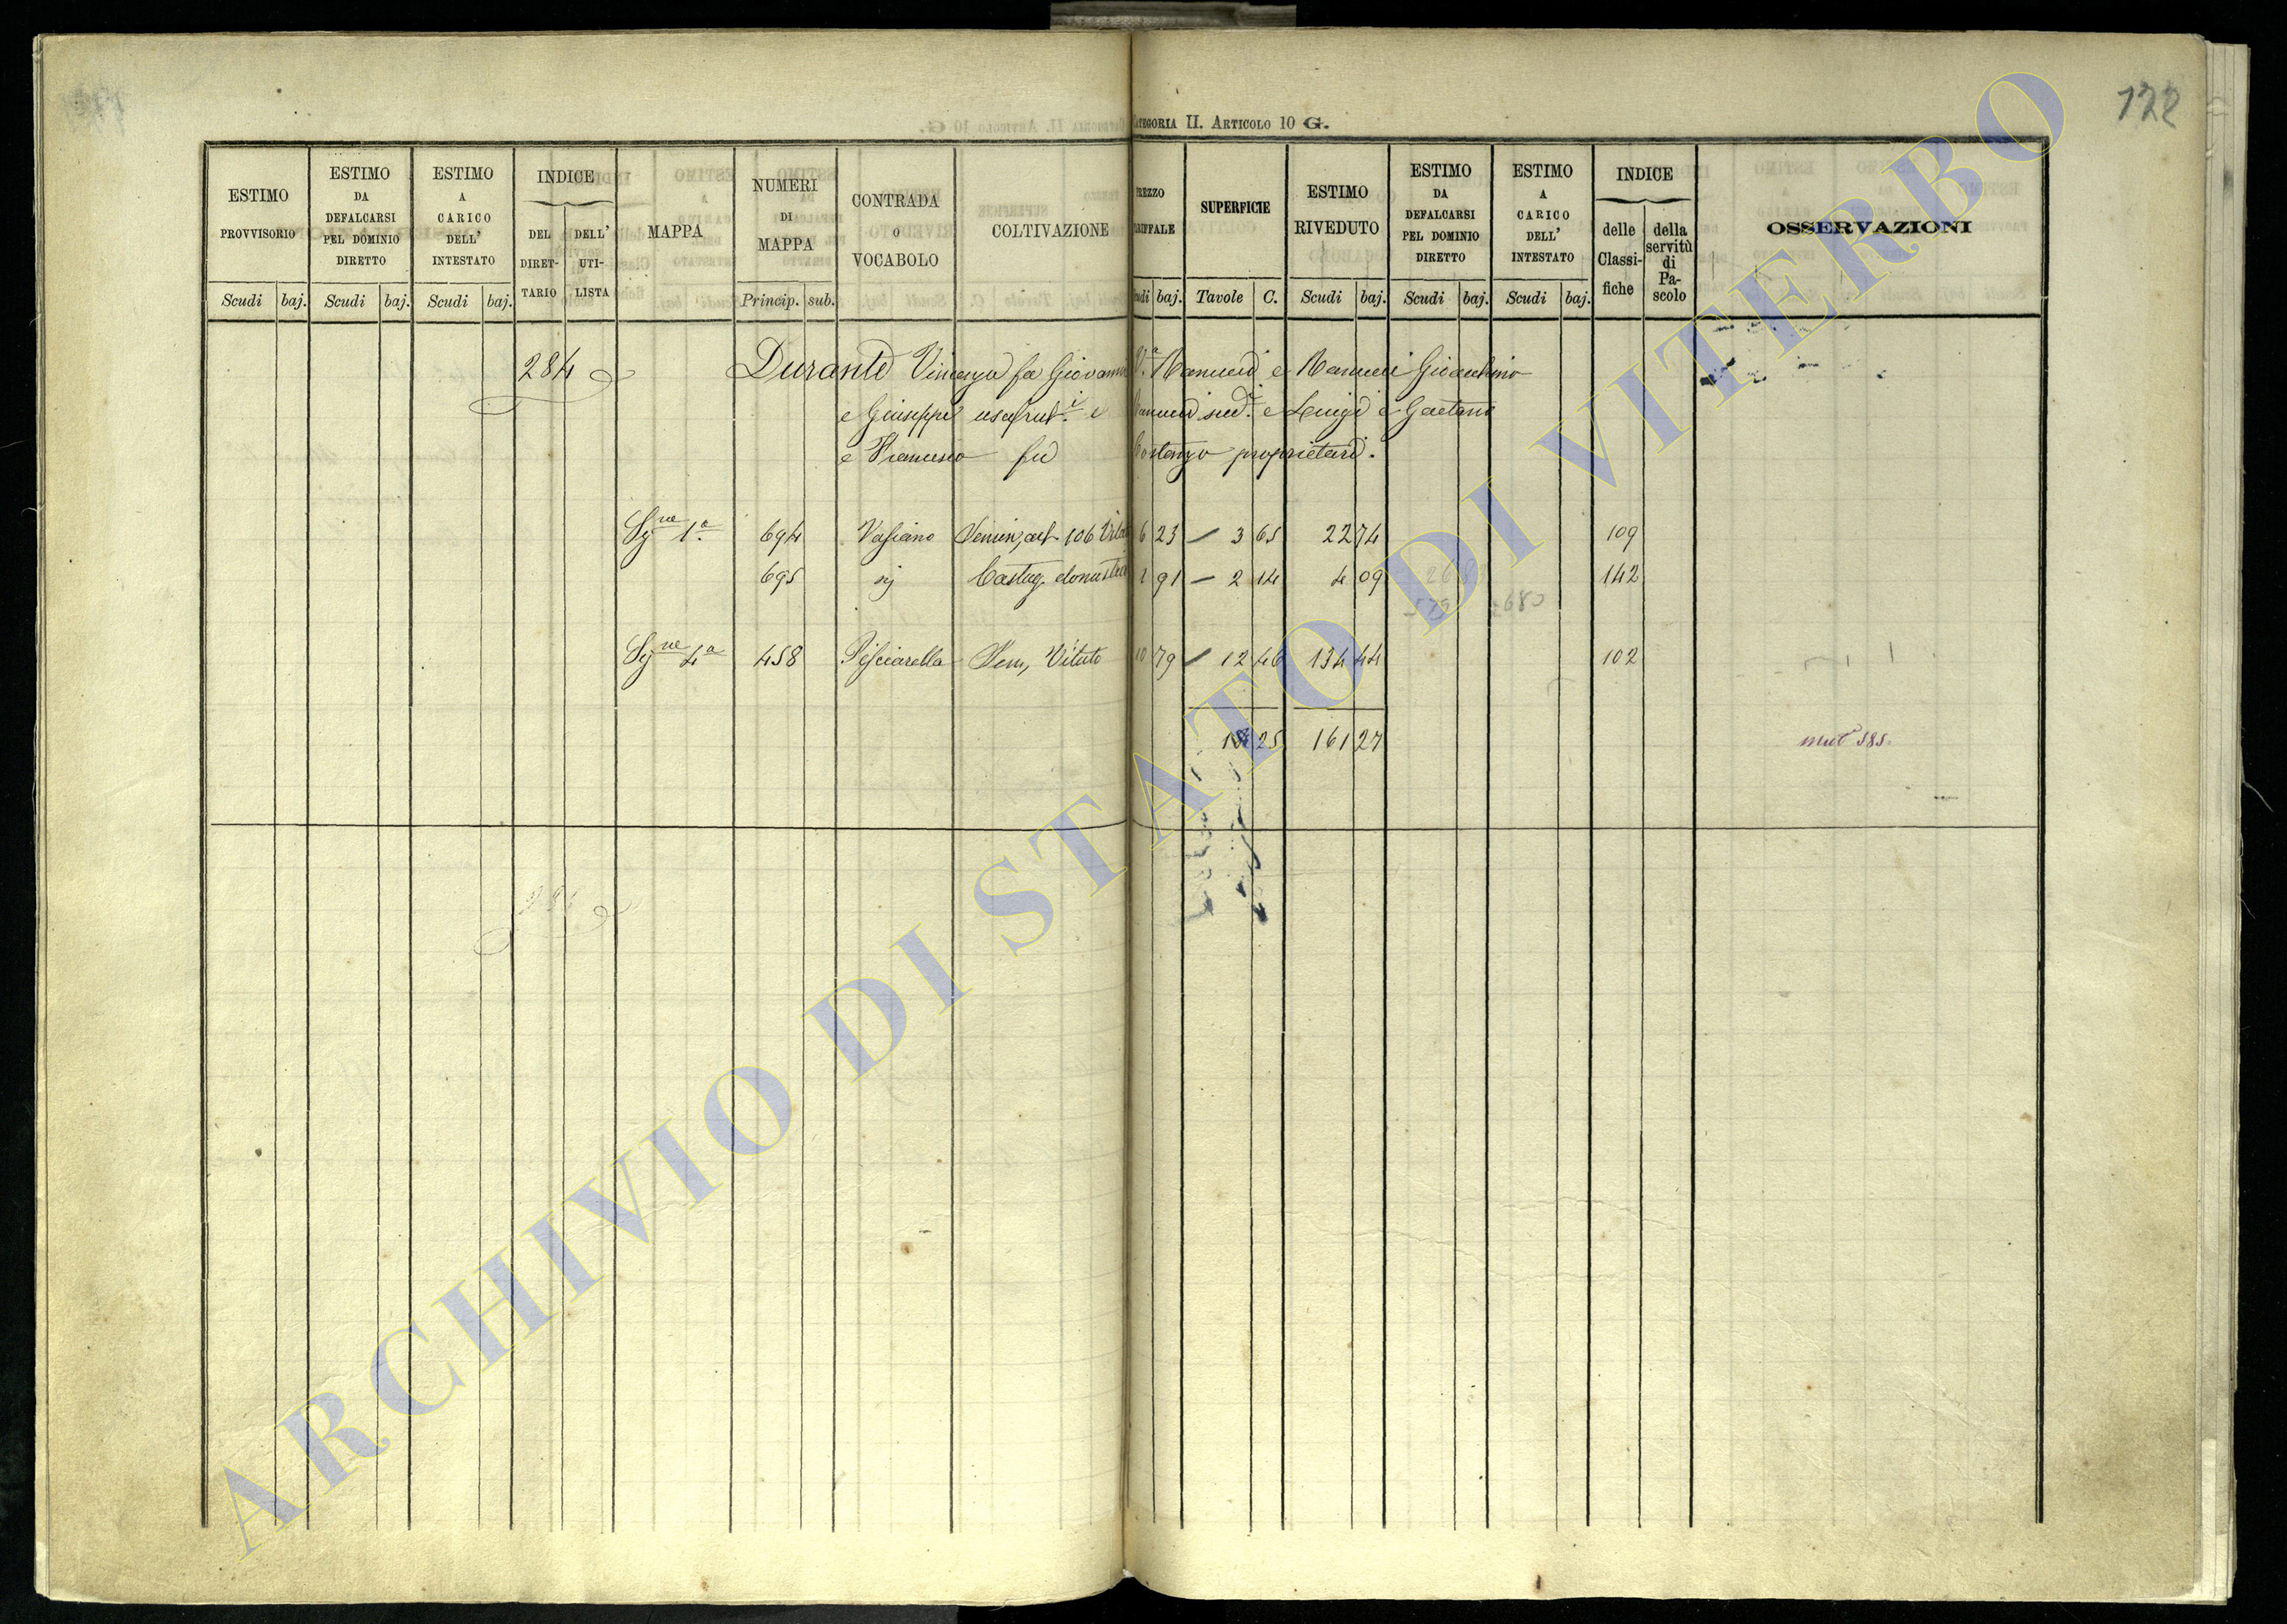 122
CATEGORIA II. ARTICOLO 10 G.
ESTIMO PROVVISORIO
Scudi baj.
ESTIMO DA DEFALCARSI PEL DOMINIO DIRETTO
Scudi baj.
ESTIMO A CARICO DELL' INTESTATO
Scudi baj.
INDICE
DEL DIRETTARIO
DELL' UTILISTA
MAPPA
NUMERI DI MAPPA
Princip. sub.
CONTRADA O VOCABOLO
COLTIVAZIONE
PREZZO TARIFFALE
Scudi baj.
SUPERFICIE
Tavole C.
ESTIMO RIVEDUTO
Scudi baj.
ESTIMO DA DEFALCARSI PEL DOMINIO DIRETTO
Scudi baj.
ESTIMO A CARICO DELL' INTESTATO
Scudi baj.
INDICE
delle Classifiche
della servitù di Pascolo
OSSERVAZIONI
284 Durante Vincenza fu Giovanni V.ª Manucci e Manucci Gioacchino
e Giuseppe usufrut.i e Manucci sud.i e Luigi e Gaetano
e Francesco fu Costanzo proprietari.
Sg.ne 1.ª 694 Vasiano 106 6 23 3 65 22 74 109
695 Castag. 1 91 2 14 4 09 142
Sg.ne 4.ª 458 Pisciarella Sem, Vitato 10 79 12 46 134 44 102
18 25 161 27
mut 585.
ARCHIVIO DI STATO DI VITERBO